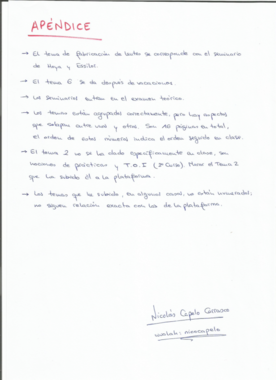 APÉNDICE
→ El tema de fabricación de lentes se corresponde con el seminario
de Hoya y Essilor.
→ El tema 6 se da después de vacaciones.
→ Los seminarios entran en el examen teórico.
→ Los temas están agrupados correctamente, pero hay aspectos
que solapan entre unos y otros. Son 16 páginas en total,
el orden de estos números indica el orden seguido en clase.
→ El tema 2 no se ha dado específicamente en clase, son
nociones de prácticas y T.O.I (2º Curso). Mirar el Tema 2
que ha subido él a la plataforma.
→ Los temas que he subido, en algunos casos, no están numerados;
no siguen relación exacta con los de la plataforma.
Nicolás Capela
wuolah: nicocapela